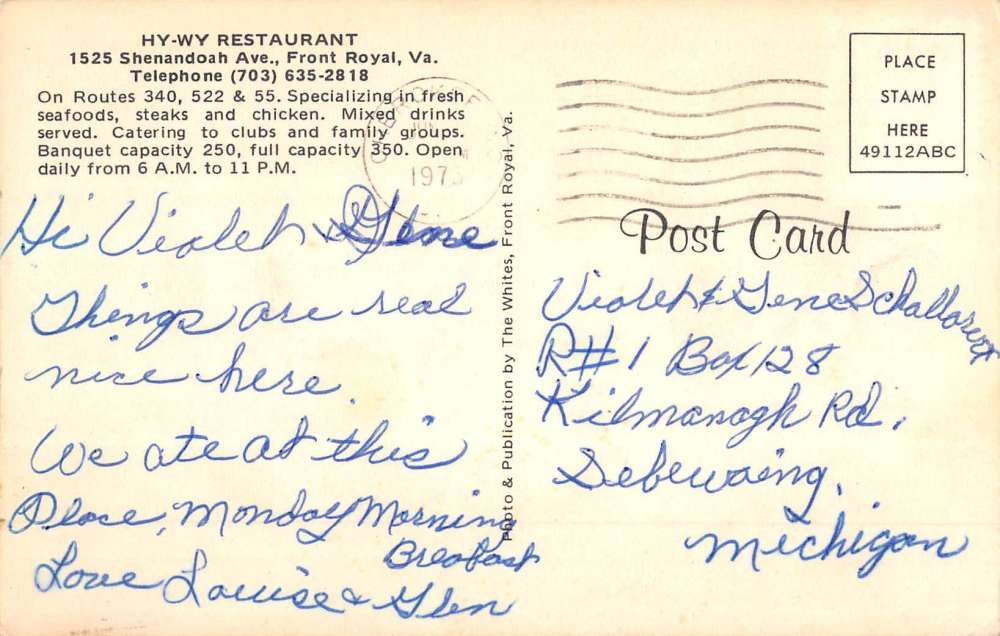 HY-WY RESTAURANT
1525 Shenandoah Ave., Front Royal, Va.
Telephone (703) 635-2818
On Routes 340, 522 & 55. Specializing in fresh
seafoods, steaks and chicken. Mixed drinks
served. Catering to clubs and family groups.
Banquet capacity 250, full capacity 350. Open
daily from 6 A.M. to 11 P.M.
Hi Violet & Gene
Things are real
nice here.
We ate at this
Place, Monday Morning
Breafast
Love Louise & Glen
Photo & Publication by The Whites, Front Royal, Va.
PLACE
STAMP
HERE
49112ABC
Post Card
Violet & Gene
R#1 Box 128
Kilmanagh Rd.
Sebewaing,
Michigan